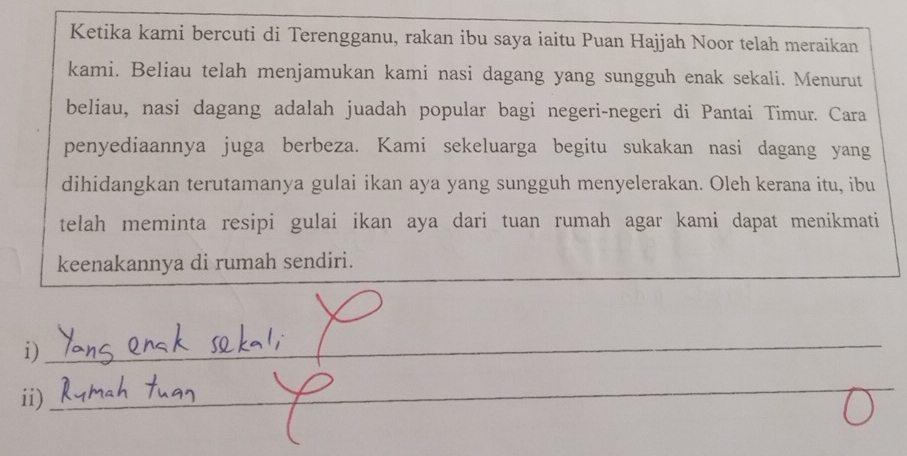 Ketika kami bercuti di Terengganu, rakan ibu saya iaitu Puan Hajjah Noor telah meraikan
kami. Beliau telah menjamukan kami nasi dagang yang sungguh enak sekali. Menurut
beliau, nasi dagang adalah juadah popular bagi negeri-negeri di Pantai Timur. Cara
penyediaannya juga berbeza. Kami sekeluarga begitu sukakan nasi dagang yang
dihidangkan terutamanya gulai ikan aya yang sungguh menyelerakan. Oleh kerana itu, ibu
telah meminta resipi gulai ikan aya dari tuan rumah agar kami dapat menikmati
keenakannya di rumah sendiri.
i) Yang enak sekali
ii) Rumah tuan
0